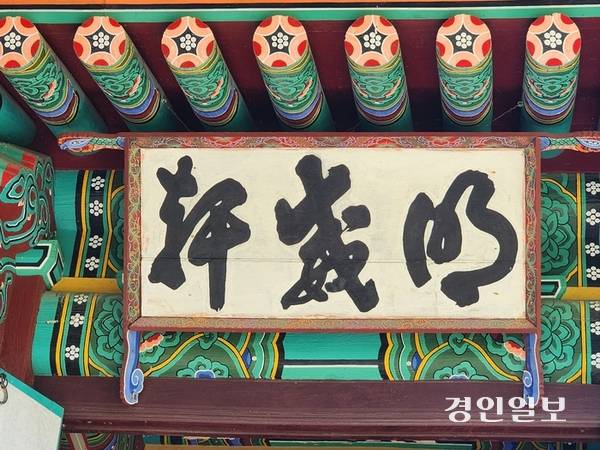 明威軒
경인일보